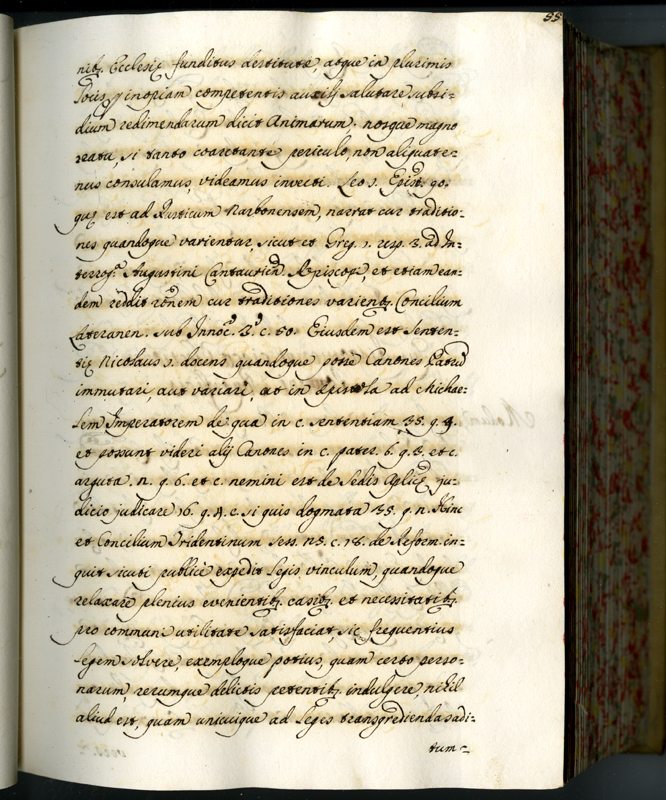 55
nitꝫ. Ecclesię funditus destitutæ, atque in plurimis
locis, ꝓ inopiam competentis auxilij salutare subsi-
dium redimendarum dicit Animarum. nosque magno
reatu, si tanto coarctante periculo, non aliquate-
nus consulamus, videamus invecti. Leo 1. Epist. 90.
quę est ad Rusticum Narbonensem, narrat cur traditio-
nes quandoque varientur, sicut et Greg. 1. resp. 3. ad In-
terrog.ᵐ Augustini Cantaurien. Æpiscopi, et etiam ean-
dem reddit rõnem cur traditiones varientꝫ. Concilium
Lateranen. sub Innõc. 3.º c. 50. Eiusdem est senten-
tię Nicolaus 1. docens quandoque posse Canones Patrũ
immutari, aut variari, ut in Epistola ad Michae-
lem Imperatorem de qua in c. sententiam 35. q. 9.
et possunt videri alij Canones in c. pater. 6. q. 3. et c.
arguta. n. q. 6. et c. nemini est de Sedis Aplicę ju-
dicio judicare 16. q. 4. c. si quis dogmata 35. q. n. Hinc
et Concilium Tridentinum sess. n5. c. 18. de Reform. in-
quit sicuti publicè expedit legis vinculum, quandoque
relaxare plenius evenientibꝫ. casibꝫ. et necessitatibꝫ.
pro communi utilitate satisfaciat, sic frequentius
legem solvere, exemploque potius, quam certo perso-
narum, rerumque delictis petentibꝫ. indulgere, nihil
aliud est, quam unicuique ad leges transgrediendas adi-
tum-